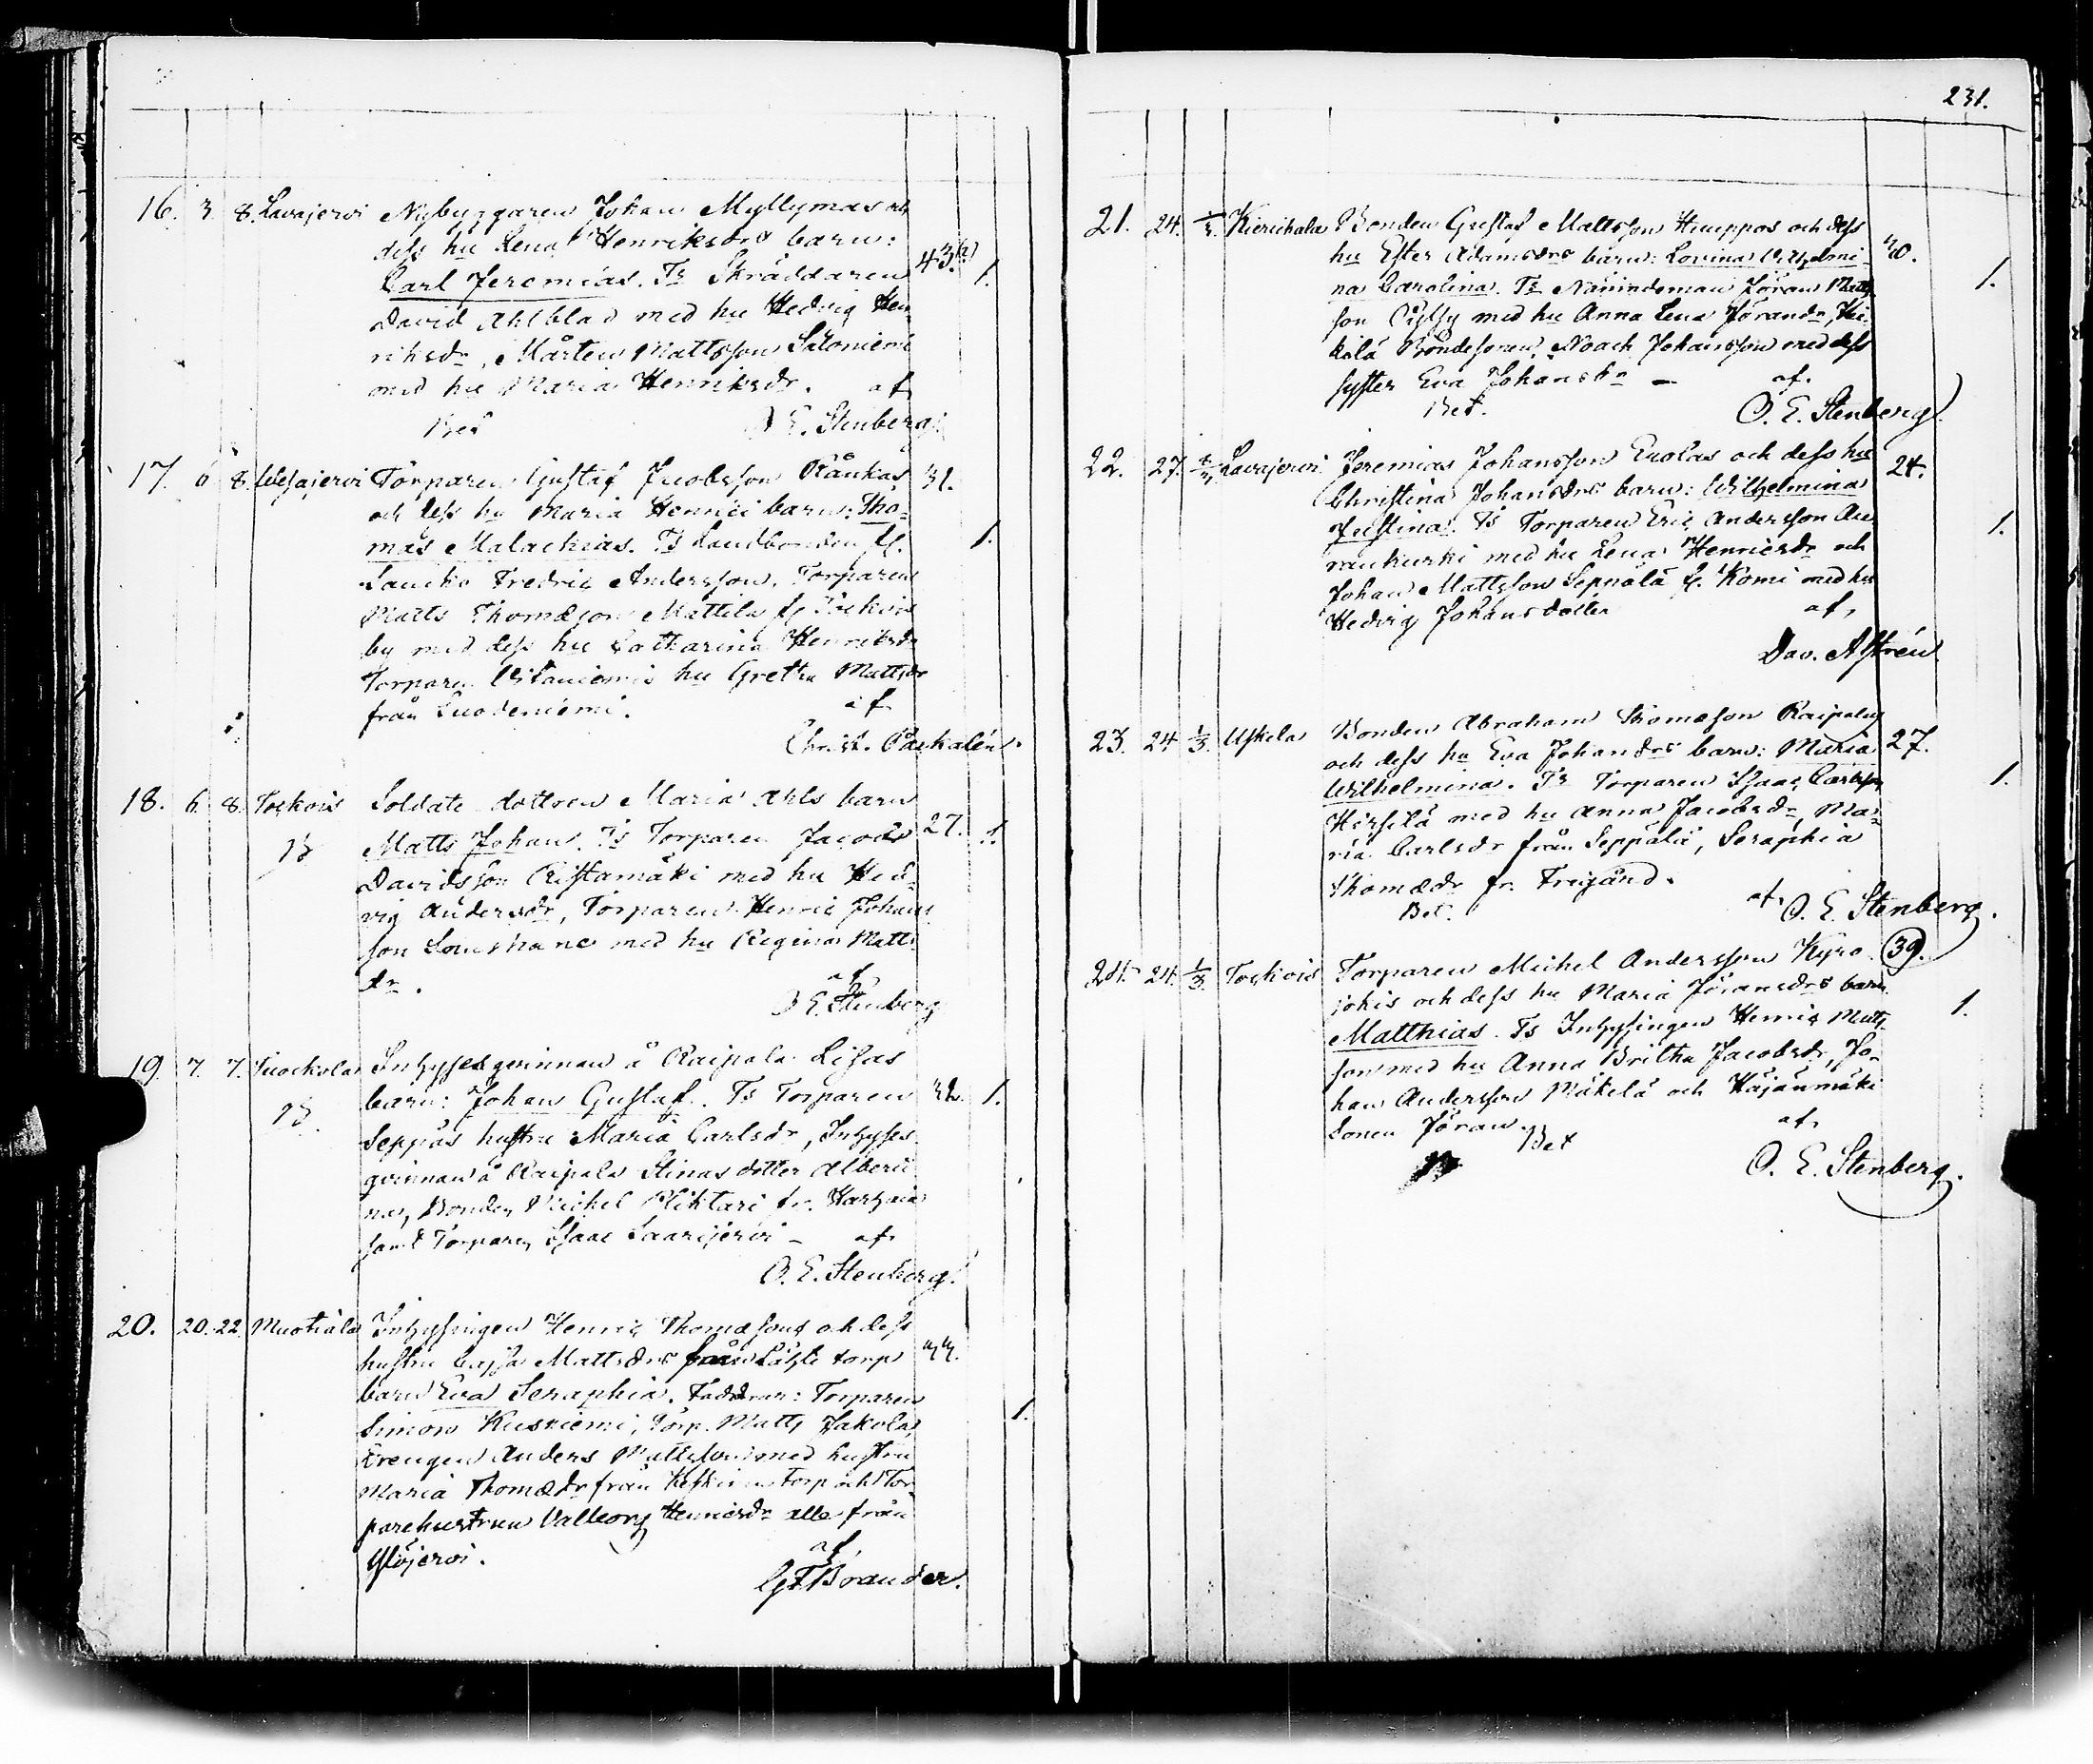 231.
16. 3. 8. Lavajervi Nybyggaren Johan Myllymas och
dess hu Lena Henriksdrs barn:
Carl Jeremias. Ts Skräddaren 43. 1.
David Ahlblad med hu Hedvig Hen-
riksdr, Mårten Mattsson Saloniemi
med hu Maria Henriksdr. af
O E. Stenberg.
17. 6 8. Wesajervi Torparen Gustaf Jacobsson 31.
och dess hu Maria Henrici barn: Tho-
mas Malachias. Ts Landbonden fr. 1.
Laucko Fredric Andersson, Torparen
Matts Thomæson Mattila fr Tockois
by med dess hu Catharina Henriksdr
Torparen hu Gretha Mattsdr
från Suodeniemi. af
Christ. Paskalén.
18. 6. 8. Tockois Soldate dottren Maria Ahls barn
Matts Johan. Ts Torparen Jacob 27. 1.
Davidsson Ristamäki med hu Hed-
vig Andersdr, Torparen Henric Johans
son med hu Regina Matts
dr. af
O E. Stenberg
19. 7. 7. Suockola Inhyseqvinnan å Raipala Lisas
barn: Johan Gustaf. Ts Torparen 32. 1.
Seppäs hustru Maria Carlsdr, Inhyses
qvinnan å Raipala Stinas dotter Alberti
na, Bonden Michel Pliktari fr.
samt Torparen Isaac Saarijervi – af
O. E. Stenberg.
20. 20. 22. Muotiala Inhysingen Henric Thomæsons och dess
hustru Cajsa Mattsdrs från torp 33.
barn Eva Seraphia. Faddrar: Torparen
Simon Kusniemi, Torp. Matts Jakola, 1.
Drengen Anders Mattsson med hustru
Maria Thomædr från torp och Tor-
parehustrun Valborg Henricsdr alla från
Ylöjervi. af
G F Brander.
21. 24. Kierikala Bonden Gustaf Mattsson Humppos och dess
hu Ester Adamsdrs barn: Lovina Wilhelmi- 40.
na Carolina. Ts Nämndeman Jöran Matts 1.
son med hu Anna Lena Jöransdr,
Bondesonen Noach Johansson med dess
syster Eva Johansdr – af.
Bet. O. E. Stenberg.
22. 27. Lavajervi Jeremias Johansson Enolas och dess hu 24.
Christina Johansdrs barn: Wilhelmina
Justina. Ts Torparen Eric Andersson 1.
med hu Lena Henricsdr och
Johan Mattsson Seppälä fr. Komi med hu
Hedvig Johansdotter af,
Dav. Astrén
23. 24 1/3. Uskela Bonden Abraham Thomæson Raipalas
och dess hu Eva Johansdrs barn: Maria 27.
Wilhelmina. Ts Torparen Isaac Carlsson 1.
Hirsilä med hu Anna Jacobsdr, Ma-
ria Carlsdr från Seppälä, Seraphia
Thomædr fr. Treigånd.
Bet. af. O. E. Stenberg.
24. 24. 1/3. Tockois Torparen Michel Andersson Kyro- 39.
jokis och dess hu Maria Jöransdrs barn
Matthias. Ts Inhysingen Henric Matts 1.
son med hu Anna Britha Jacobsdr, Jo-
han Andersson Mäkelä och Kajanmäki
sonen Jöran. Bet af.
O. E. Stenberg.